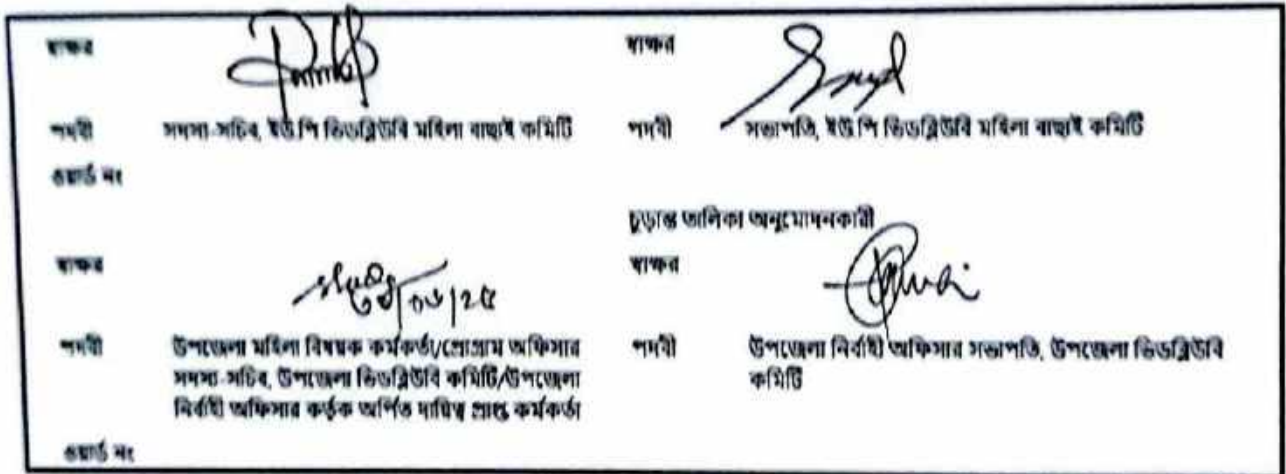 স্বাক্ষর
স্বাক্ষর
পদবী সদস্য-সচিব, ইউপি ভিডব্লিউবি মহিলা বাছাই কমিটি
পদবী সভাপতি, ইউপি ভিডব্লিউবি মহিলা বাছাই কমিটি
ওয়ার্ড নং
চুড়ান্ত তালিকা অনুমোদনকারী
স্বাক্ষর
স্বাক্ষর
পদবী উপজেলা মহিলা বিষয়ক কর্মকর্তা/প্রোগ্রাম অফিসার
সদস্য-সচিব, উপজেলা ভিডব্লিউবি কমিটি/উপজেলা
নির্বাহী অফিসার কর্তৃক অর্পিত দায়িত্ব প্রাপ্ত কর্মকর্তা
পদবী উপজেলা নির্বাহী অফিসার সভাপতি, উপজেলা ভিডব্লিউবি
কমিটি
ওয়ার্ড নং